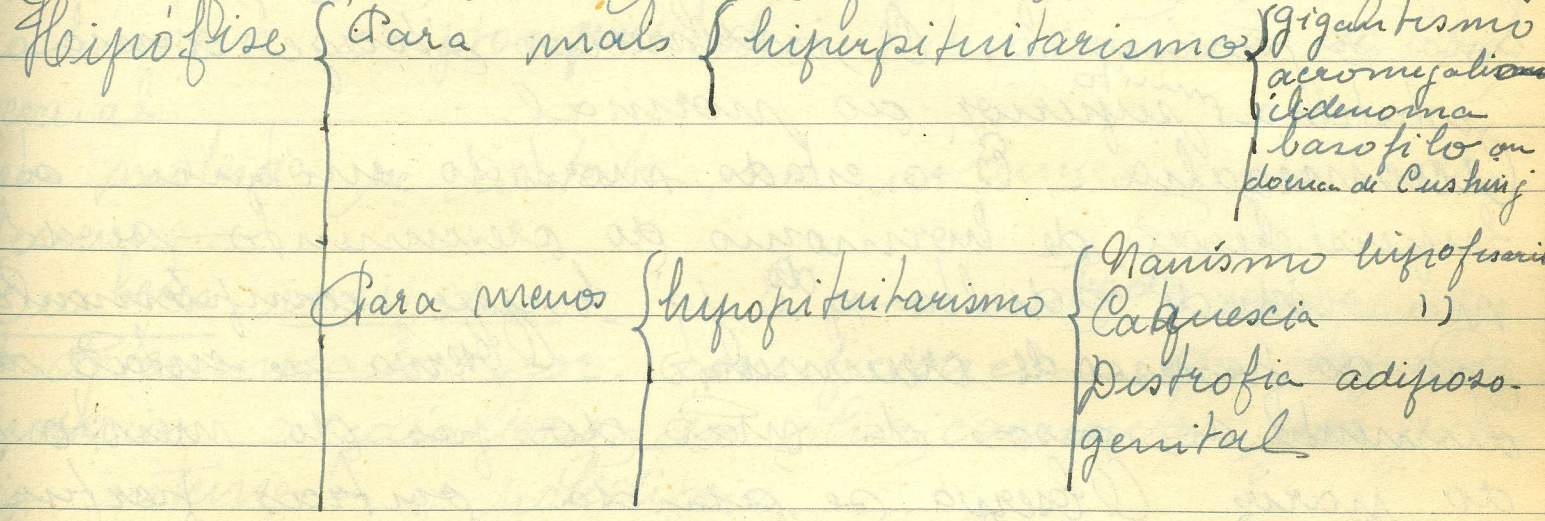 Hipófise { Para mais { hiperpituitarismo { gigantismo
acromegalia
adenoma
basofilo ou
doença de Cushing
Para menos { hipopituitarismo { Nanismo hipofisario
Caquexia ")
Distrofia adiposo-
genital